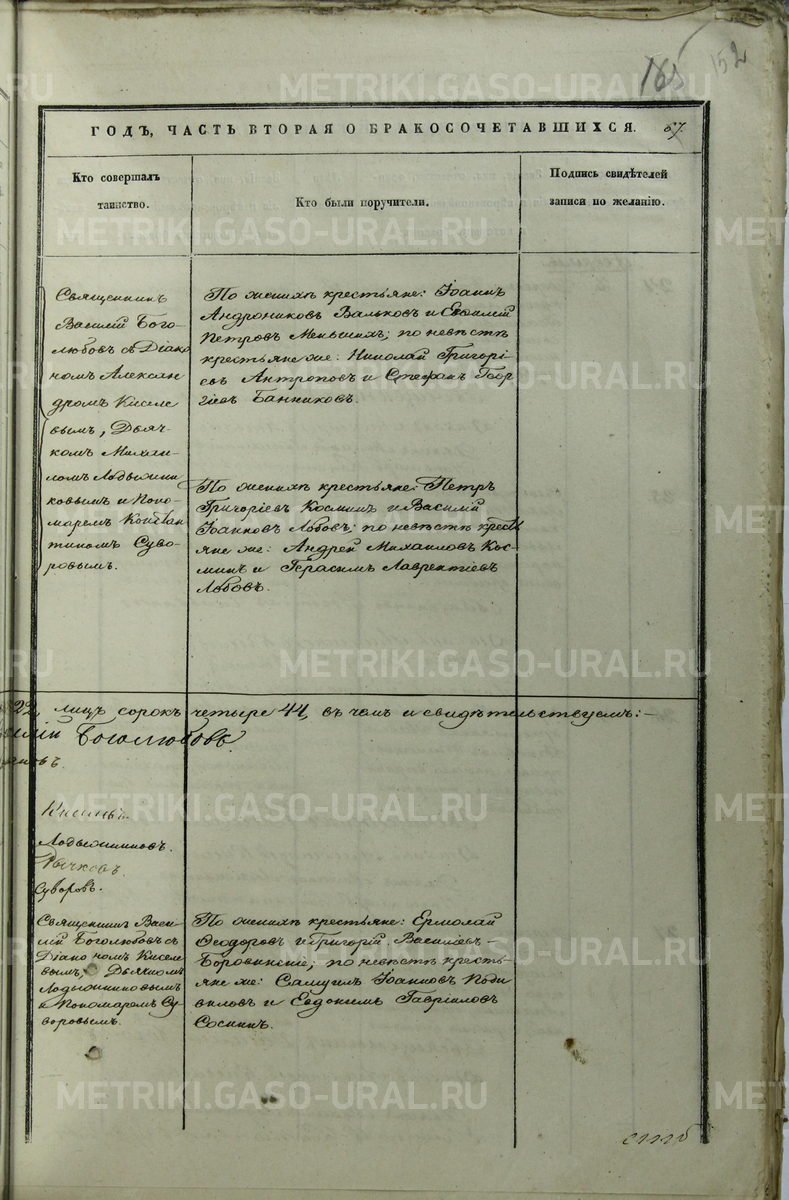 165 152
ГОДЪ, ЧАСТЬ ВТОРАЯ О БРАКОСОЧЕТАВШИХСЯ. 67.
Кто совершалъ
таинство.
Кто были поручители.
Подпись свидѣтелей
записи по желанію.
Священникъ
Василій Бого-
любовъ съ Діако
номъ Алексан
дромъ Киселе
вымъ, Дьяч-
комъ Михаи
ломъ Лодыжни
ковымъ и Поно-
маремъ Констан
тиномъ Суво-
ровымъ.
По женихѣ крестьяне: Іоаннъ
Андрониковъ Вальковъ и Евсилий
Петровъ Меньшихъ; по невѣстѣ
крестьяне же: Николай Григорі-
евъ Антроповъ и Стефанъ Геор
гіевъ Банниковъ.
По женихѣ крестьяне: Петръ
Григоріевъ Косминъ и Василій
Іоанновъ Лобовъ; по невѣстѣ кресть
яне же: Андрей Михаиловъ Кос-
минъ и Герасимъ Лаврентіевъ
Лобовъ.
22, лицъ сорокъ четыре 44, въ чемъ и свидѣтельствуемъ:—
Боголюбовъ.
Лодыжниковъ.
Рычковъ.
Суворовъ.
Священникъ Васи-
лій Боголюбовъ съ
Діакономъ Киселе
вымъ; Дьячкомъ
Лодыжниковымъ
и Пономаремъ Су-
воровымъ.
По женихѣ крестьяне: Ермолай
Ѳеодоровъ и Григорій Василіевъ-
Боровинскіе; по невѣстѣ кресть-
яне же: Самуилъ Іоанновъ Поди
виловъ и Евдокимъ Гавріиловъ
Соснинъ.
METRIKI.GASO-URAL.RU